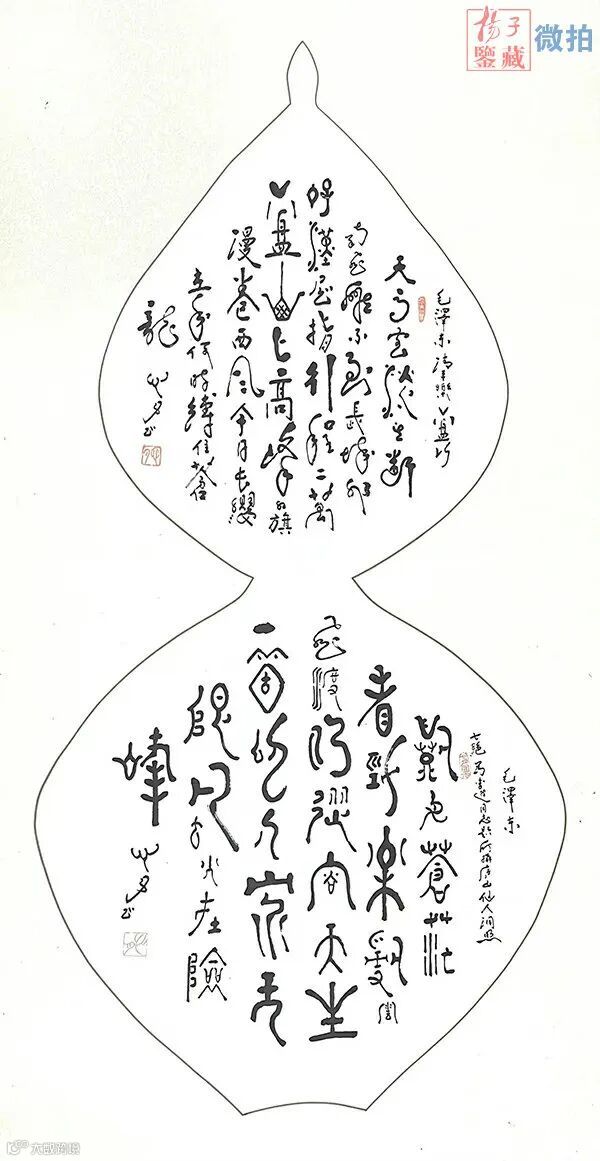 揚子
鑒藏
微拍
毛澤東清平樂六盤山
天高雲淡望斷
南飛雁不到長城非
好漢屈指行程二萬
六盤山上高峰紅旗
漫卷西風今日長纓
在手何時縛住蒼
龍
毛澤東
七絕為李進同志題所攝廬山仙人洞照
暮色蒼茫
看勁松亂雲
飛渡仍從容天生
一個仙人洞无
限風光在險
峰